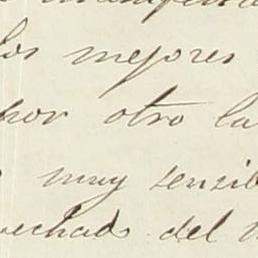 los mejores
por otro la
muy sensib
vechado del